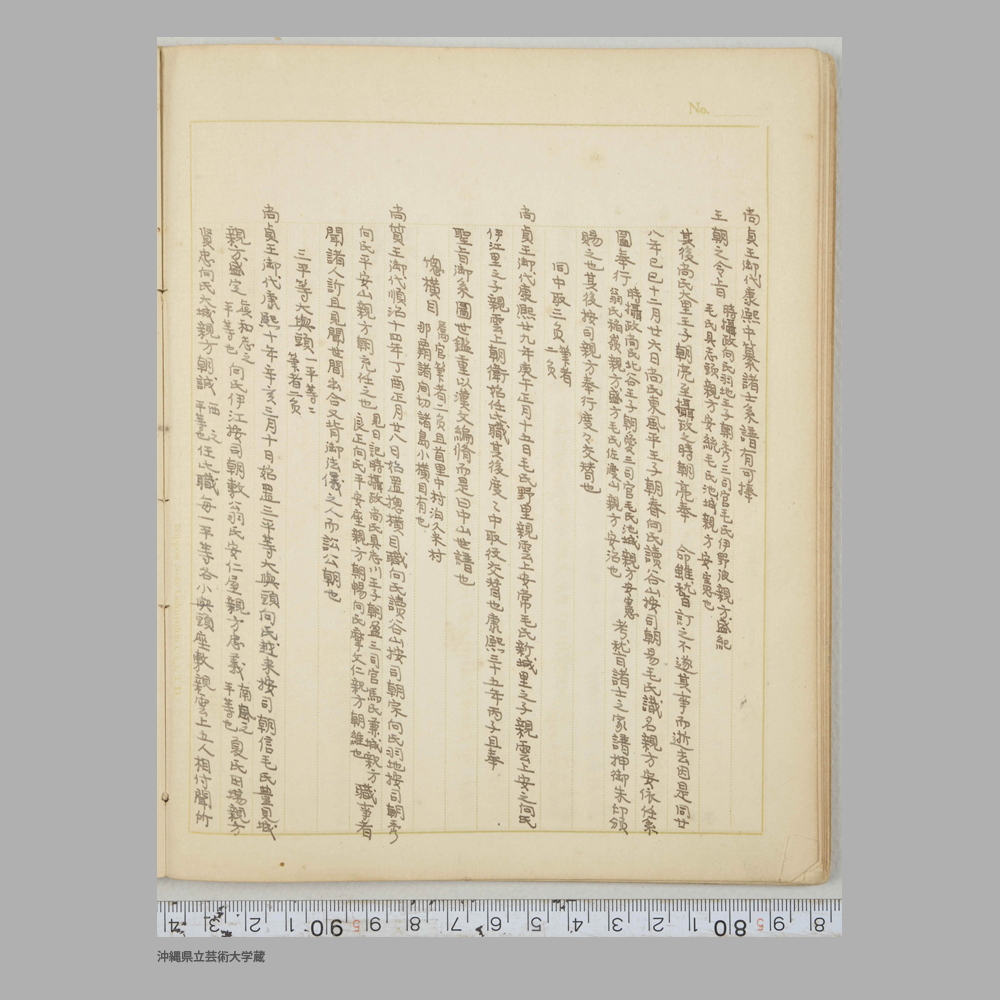 No.
尚貞王御代康熙中纂諸士系譜有可捧
王朝之令旨 時攝政向氏羽地王子朝秀三司官毛氏伊野波親方盛紀
毛氏具志頭親方安統毛氏池城親方安憲也
其後尚氏大里王子朝亮至攝政之時朝亮奉 命雖執旨訂之不遂其事而逝去因是同廿
八年己巳十二月廿六日尚氏東風平王子朝春向氏讀谷山按司朝易毛氏識名親方安依任系
圖奉行 時攝政尚氏北谷王子朝愛三司官毛氏池城親方安憲
翁氏稲嶺親方盛方毛氏佐渡山親方安治也 考於旨諸士之家譜押御朱印頒
賜之也其後按司親方奉行度々交替也
同中取三員 筆者
二員
尚貞王御代康熙廿九年庚午正月十五日毛氏野里親雲上安常毛氏新城里之子親雲上安之向氏
伊江里之子親雲上朝衛始任此職其後度々中取役交替也康熙三十五年丙子且奉
聖旨御系圖世鑑重以漢文編脩而是曰中山世譜也
惣横目 属官筆者二員且首里中村泊久米村
那覇諸間切諸島小横目有也
尚質王御代順治十四年丁酉正月廿八日始置惣横目職向氏讀谷山按司朝宗向氏羽地按司朝秀
向氏平安山親方朝充任之也 見日記時攝政尚氏具志川王子朝盈三司官馬氏兼城親方
良正向氏平安座親方朝暢向氏摩文仁親方朝維也 職事者
聞諸人許且見聞世間出合又背御法儀之人而訟公朝也
三平等大與頭 一平等ニ
筆者二員
尚貞王御代康熙十年辛亥三月十日始置三平等大與頭向氏越来按司朝信毛氏豊見城
親方盛定 真和志之
平等也 向氏伊江按司朝敷翁氏安仁屋親方唐義 南風之
平等也 夏氏田場親方
賢忠向氏大城親方朝誠 西之
平等也 任此職毎一平等各小與頭座敷親雲上五人相付聞所
沖縄県立芸術大学蔵